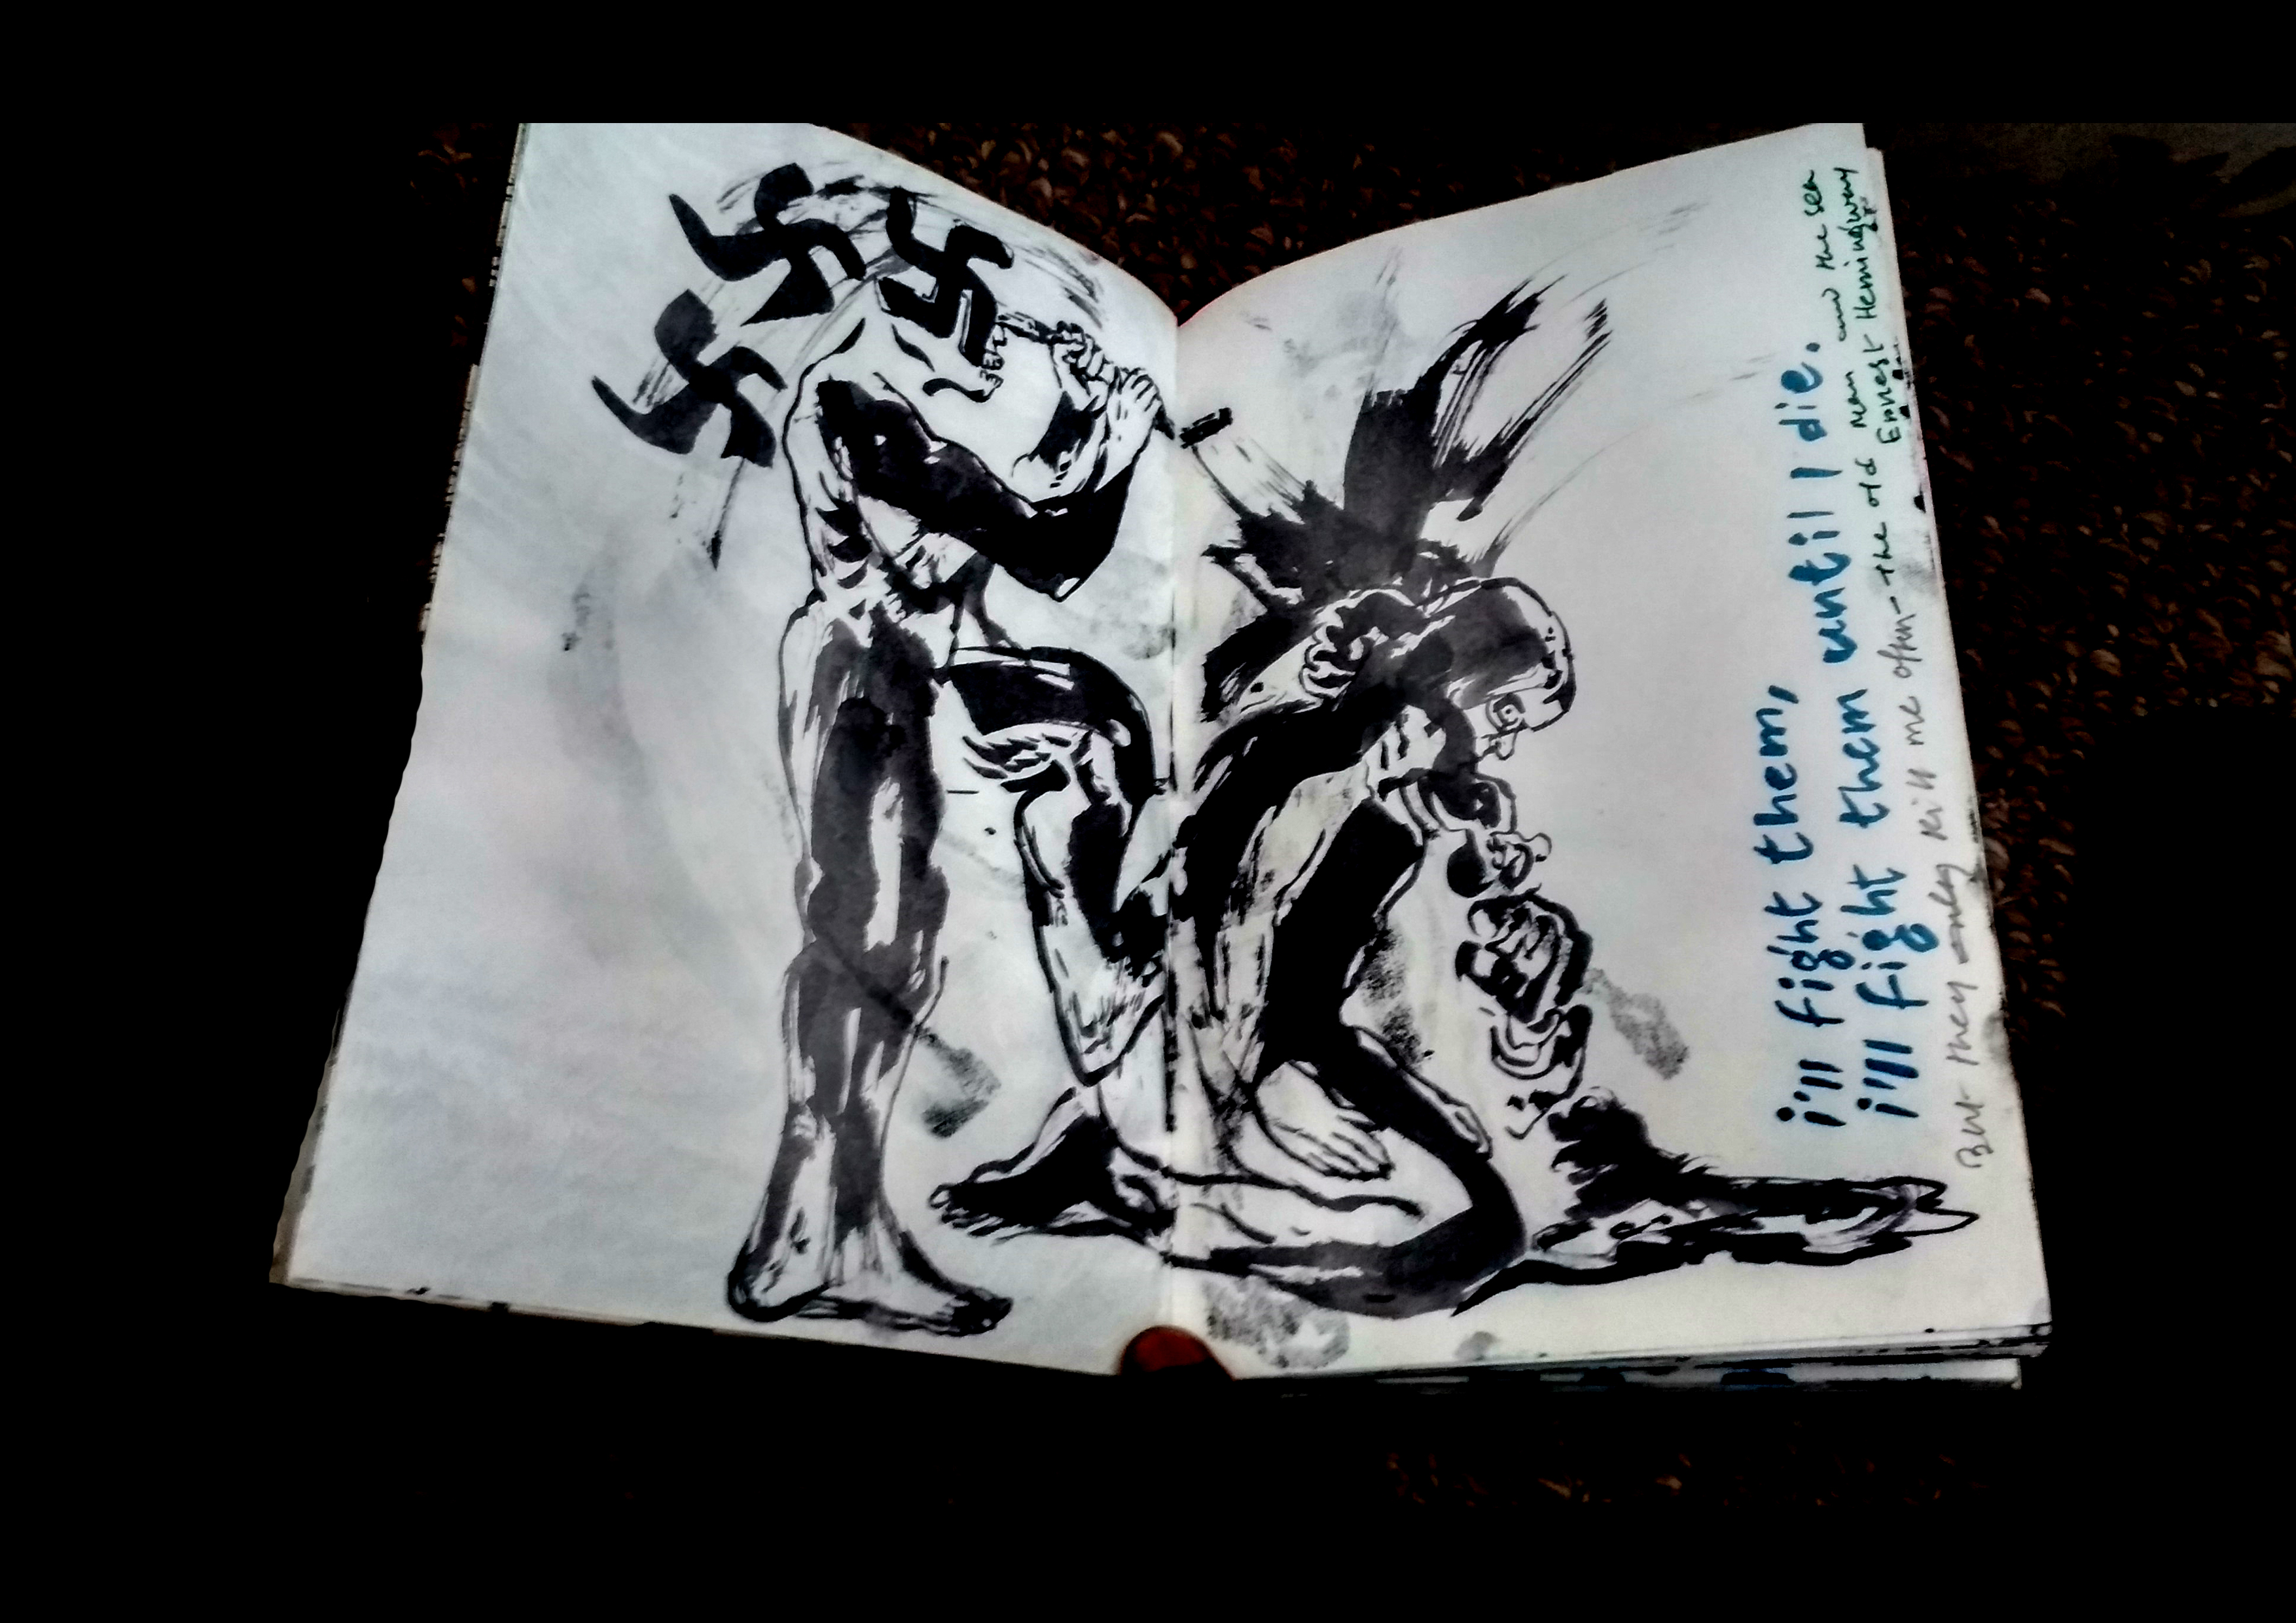 i'll fight them,
i'll fight them until I die.
But they only kill me often - the old man and the sea
Ernest Hemingway